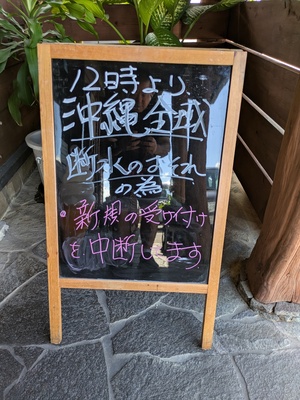 12時より、
沖縄全域
断水のおそれ
の為
・新規の受け付け
を中断します